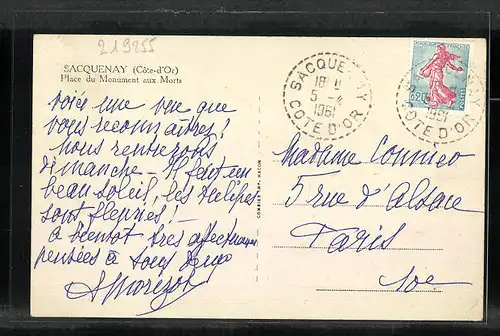 219255
SACQUENAY (Côte-d'Or)
Place du Monument aux Morts
Voici une vue que
vous reconnaîtrez!
Nous rentrerons
dimanche - Il fait un
beau soleil, les tulipes
sont fleuries! -
à bientôt très affectueuses
pensées à tous deux
SACQUENAY
18 H
5 - 4
1961
COTE D'OR
0,20
POSTES
1961
COTE D'OR
Madame
5 rue d'Alsace
Paris
10e